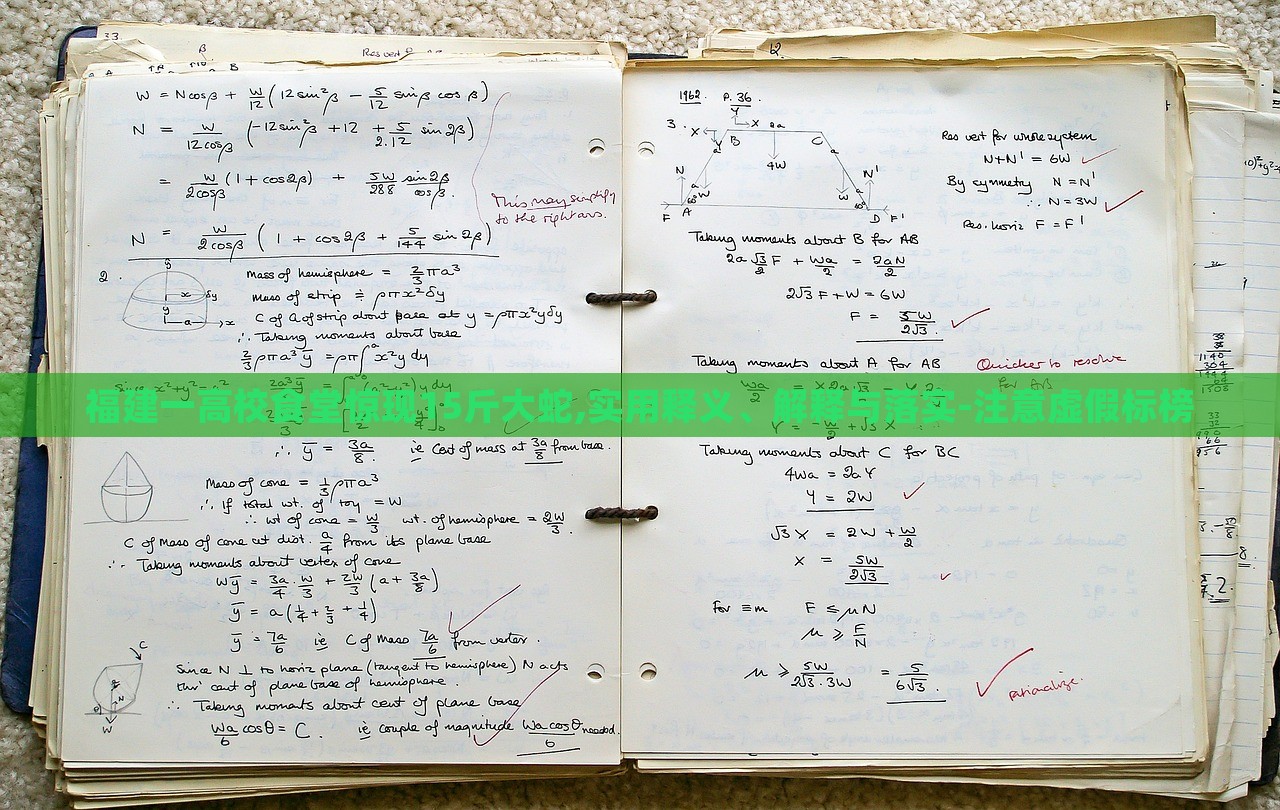 33.
β
Res vert
W = Ncosβ + W/12 (12 sin²β − 5/12 sinβ cosβ)
N = W/12cosβ (−12 sin²β + 12 + 5/2.12 sin 2β)
= W/2cosβ (1 + cos2β) + 5W/288 sin2β/cosβ.
This may simplify
to the right ans.
N = W/2cosβ (1 + cos2β + 5/144 sin 2β)
2.
Mass of hemisphere = 2/3 πa³
Mass of strip ≑ ρπx²δy
C of G of strip about base at y = ρπx²yδy
∴ Taking moments about base
2/3 ρπa³ȳ = ρπ∫ᵃ x²y dy
福建一高校食堂惊现15斤大蛇,实用释义、解释与落实-注意虚假标榜
∴ ȳ = 3a/8 ie Cent of mass at 3a/8 from base.
Mass of cone = 1/3 ρπa³
∴ If total wt. of toy = W
∴ wt of cone = W/3 wt. of hemisphere = 2W/3.
C of Mass of cone at dist. a/4 from its plane base
∴ Taking moments about vertex of cone
Wȳ = 3a/4 · W/3 + 2W/3 (a + 3a/8)
ȳ = a(1/4 + 2/3 + 1/4)
ȳ = 7a/6 ie C of Mass 7a/6 from vertex.
Since N ⊥ to horiz plane (tangent to hemisphere) N acts
thro' cent of plane base of hemisphere.
∴ Taking moments about cent of plane base
Wa/6 cosθ = C. ie couple of magnitude Wa cosθ/6 needed.
1962. P. 36.
3.
Res vert for whole system
N+N' = 6W
By symmetry N = N'
∴ N = 3W
Res. horiz F = F'
Taking moments about B for AB
2a √3/2 F + Wa/2 = 2aN/2
2√3 F + W = 6W
F = 5W/2√3.
Taking moments about A for AB
Quicker to resolve
for AB
Taking moments about C for BC
4Wa = 2aY
Y = 2W
√3 X = 2W + W/2
X = 5W/2√3
For ≡m F ≤ μN
μ ≥ F/N
μ ≥ 5W/2√3·3W = 5/6√3.
rationalize.